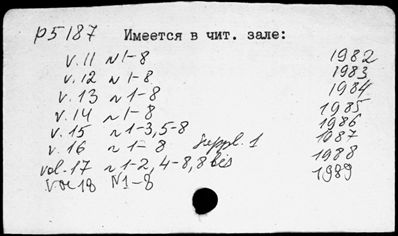 p5187 Имеется в чит. зале:
v. 11 N 1-8 1982
v. 12 N 1-8 1983
v. 13 N 1-8 1984
v. 14 N 1-8 1985
v. 15 N 1-3, 5-8 1986
v. 16 N 1-8 Suppl. 1 1987
vol. 17 N 1-2, 4-8, 8 bis 1988
vol 18 N 1-8 1989